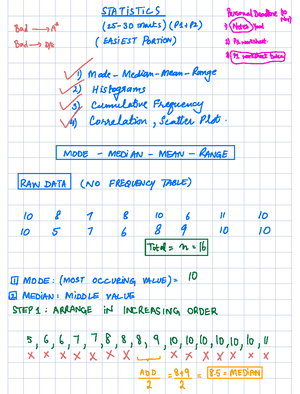 STATISTICS
(25-30 marks) (P1+P2)
(EASIEST PORTION)
Bad → A*
Bad →
Personal Deadline to
1) Notes
2) P2 worksheet
3) P2 worksheet
1) Mode - Median - Mean - Range
2) Histograms
3) Cumulative Frequency
4) Correlation, Scatter Plot.
MODE - MEDIAN - MEAN - RANGE
RAW DATA (NO FREQUENCY TABLE)
10 8 7 8 10 6 11 10
10 5 7 6 8 9 10 10
Total = n = 16
1 MODE: (MOST OCCURING VALUE) = 10
2 MEDIAN: MIDDLE VALUE
STEP 1: ARRANGE IN INCREASING ORDER
5, 6, 6, 7, 7, 8, 8, 8, 9, 10, 10, 10, 10, 10, 10, 11
x x x x x x x x x x x x x x
ADD/2 = 8+9/2 = 8.5 = MEDIAN